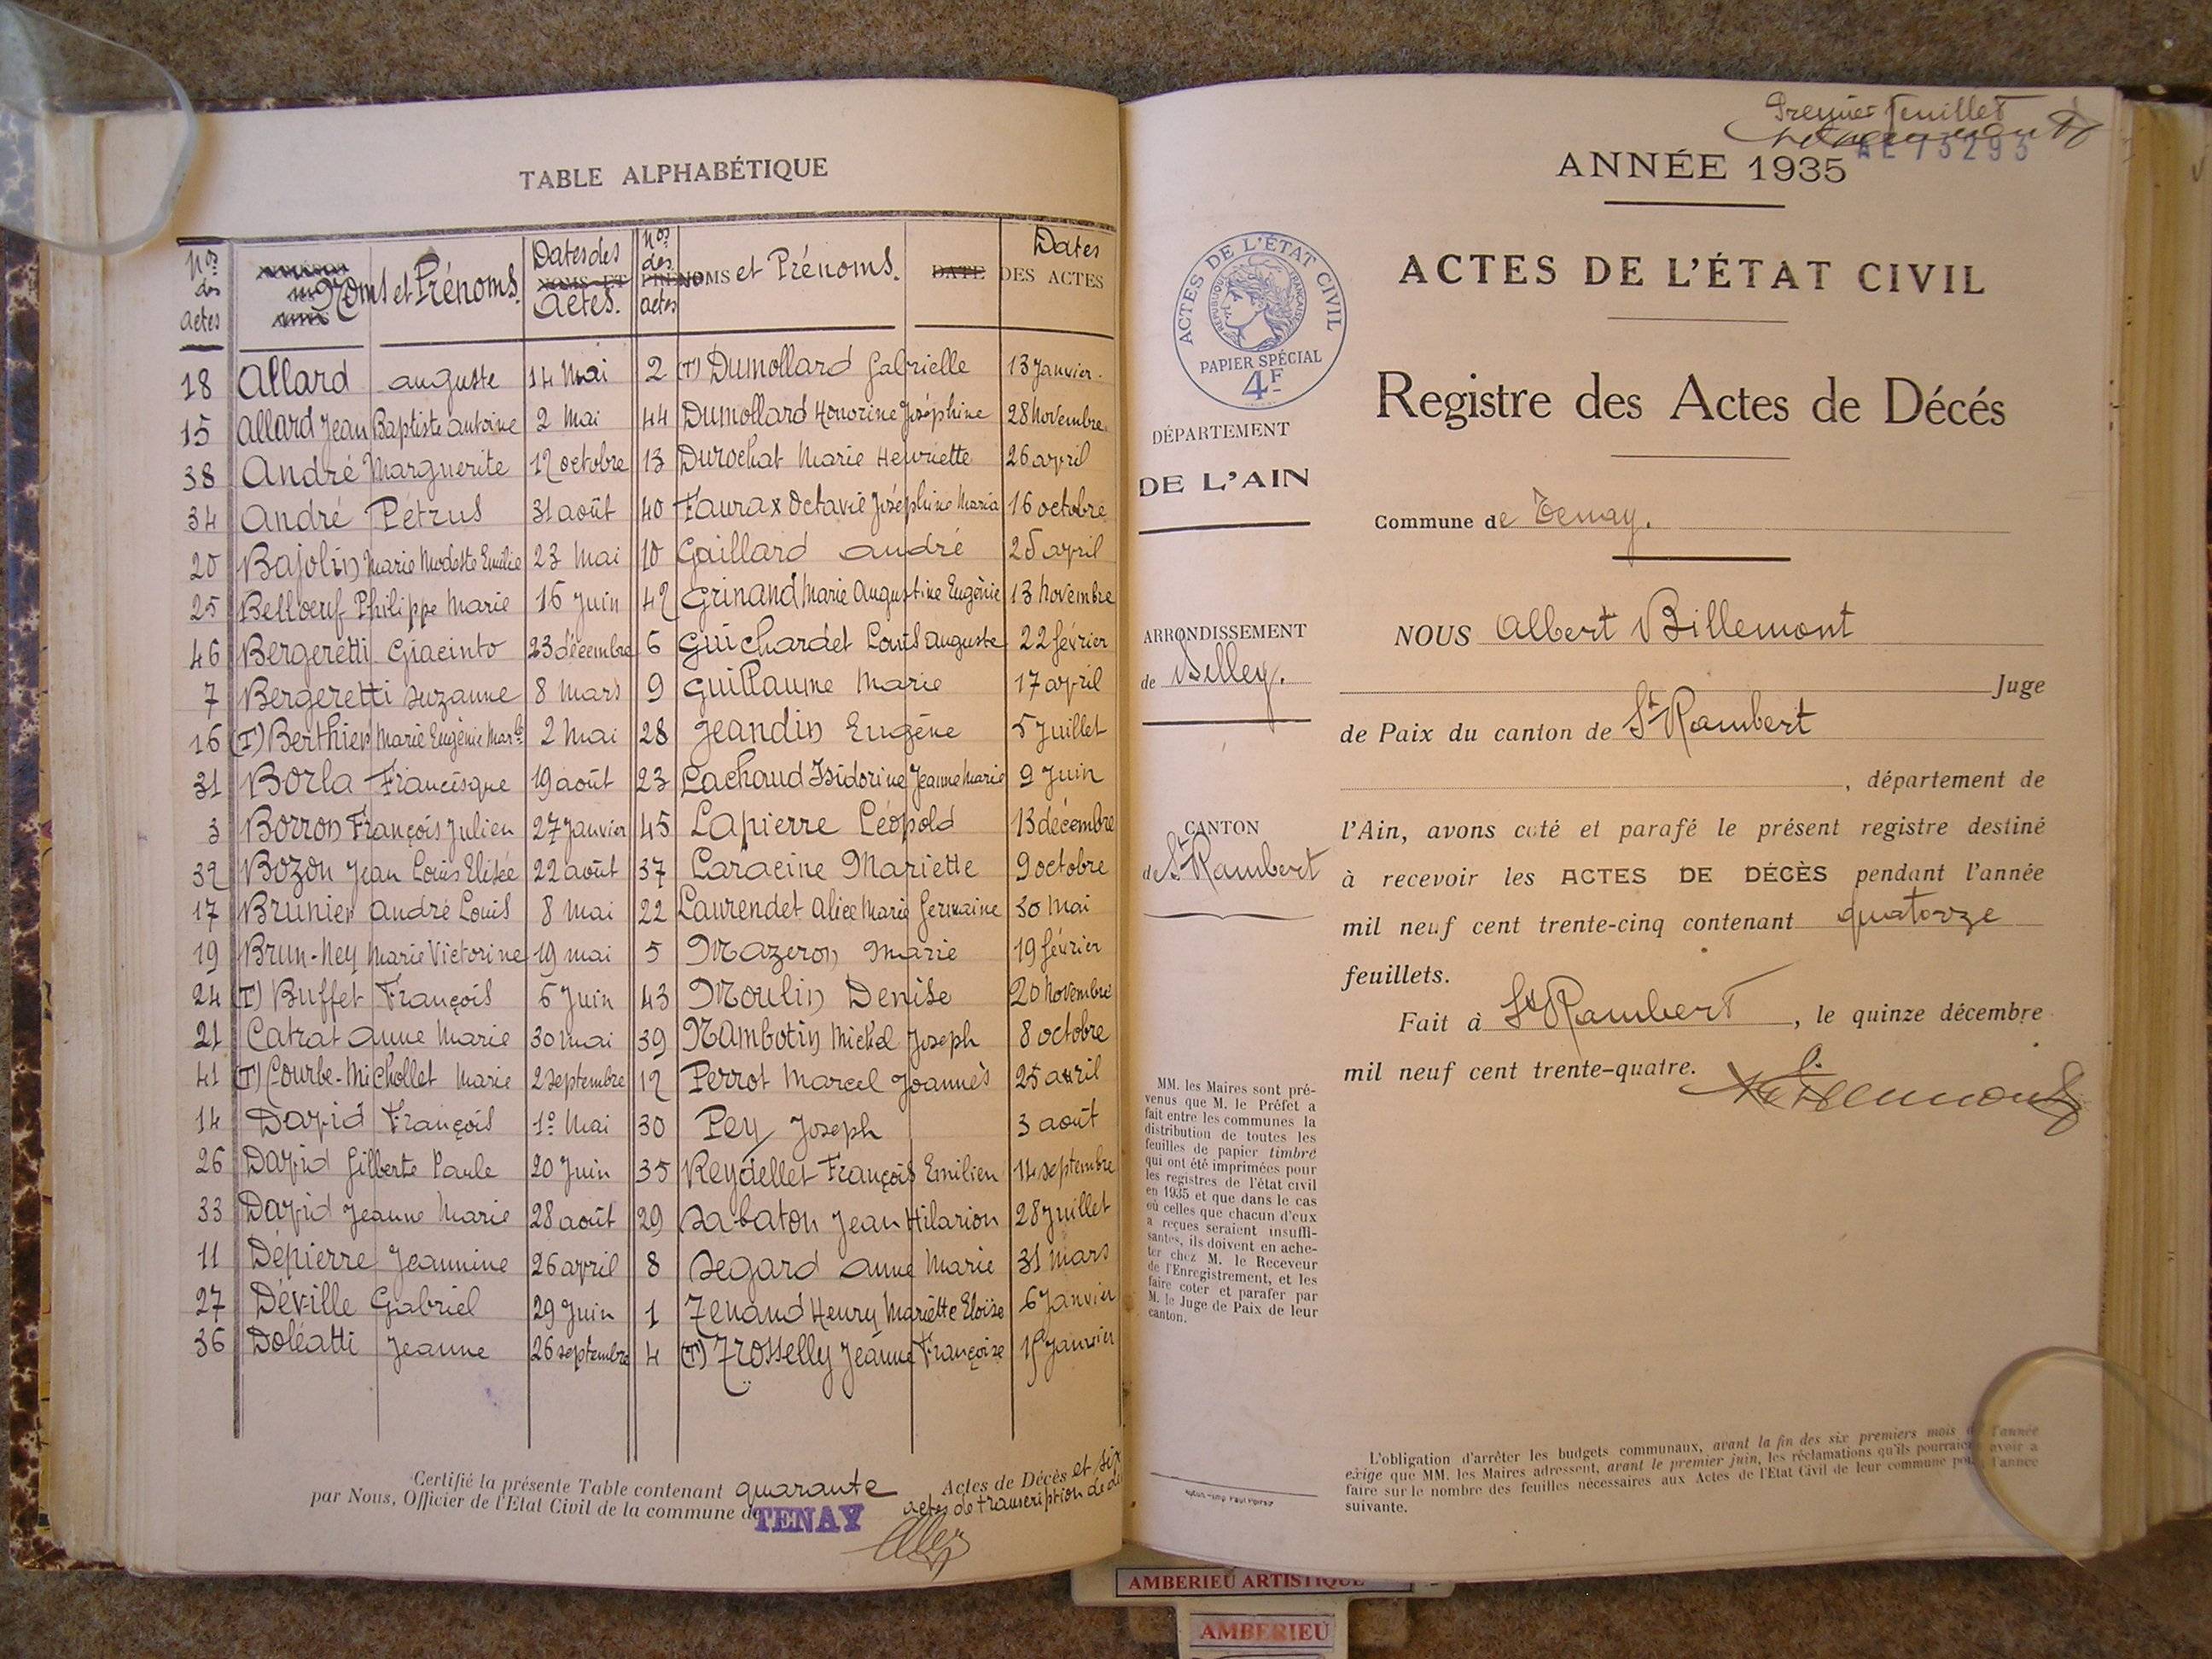 TABLE ALPHABÉTIQUE
Nos des actes Noms et Prénoms. Dates des NOMS ET actes. Nos des PRÉNOMS actes et Prénoms. DATE Dates DES ACTES
18 Allard auguste 14 Mai 2 (T) Dumollard Gabrielle 13 Janvier.
15 Allard Jean Baptiste antoine 2 Mai 44 Dumollard Honorine Joséphine 28 Novembre.
38 André Marguerite 12 octobre 13 Durochat Marie Henriette 26 avril
34 André Pétrus 31 août 40 Faurax Octavie Joséphine Maria 16 octobre
20 Bajolin Marie Modeste Emilie 23 Mai 10 Gaillard andré 25 avril
25 Belloeuf Philippe Marie 16 Juin 42 Grinand Marie Augustine Eugénie 13 Novembre
46 Bergeretti Giacinto 23 décembre 6 Guichardet Louis auguste 22 février
7 Bergeretti Suzanne 8 Mars 9 Guillaume Marie 17 avril
16 (T) Berthier Marie Eugénie 2 Mai 28 Jeandin Eugène 5 Juillet
31 Borla Francisque 19 août 23 Lachaud Isidorine Jeanne Marie 9 Juin
3 Borron François Julien 27 Janvier 45 Lapierre Léopold 13 décembre
32 Bozon Jean Louis Elisée 22 août 37 Laracine Mariette 9 octobre
17 Brunier André Louis 8 Mai 22 Laurendet Alice Marie Germaine 30 Mai
19 Brun-Ney Marie Victorine 19 mai 5 Mazeron Marie 19 février
24 (T) Buffet François 6 Juin 43 Moulin Denise 20 Novembre
21 Catrat Anne Marie 30 mai 39 Nambotin Michel Joseph 8 octobre
41 (T) Courbe-Michollet Marie 2 septembre 12 Perrot Marcel Joannès 25 avril
14 David François 1er Mai 30 Pey Joseph 3 août
26 David Gilberte Paule 20 Juin 35 Reydellet François Emilien 14 septembre
33 David Jeanne Marie 28 août 29 Sabaton Jean Hilarion 28 Juillet
11 Dépierre Jeannine 26 avril 8 Segard Anne Marie 31 Mars
27 Déville Gabriel 29 Juin 1 Tenand Henry Mariette Eloïse 6 Janvier
36 Doléatti Jeanne 26 septembre 4 (T) Trosselly Jeanne Françoise Janvier
Certifié la présente Table contenant quarante Actes de Décès et six
par Nous, Officier de l'Etat Civil de la commune de TENAY actes de transcription de
Premier feuillet
AE 73293
ANNÉE 1935
ACTES DE L'ÉTAT CIVIL
ACTES DE L'ÉTAT CIVIL
RÉPUBLIQUE FRANÇAISE
PAPIER SPÉCIAL
4F
Registre des Actes de Décés
DÉPARTEMENT
DE L'AIN
Commune de Tenay.
ARRONDISSEMENT
de Belley.
NOUS Albert Billemont
Juge
de Paix du canton de St Rambert
, département de
CANTON
de St Rambert
l'Ain, avons coté et parafé le présent registre destiné
à recevoir les ACTES DE DÉCÈS pendant l'année
mil neuf cent trente-cinq contenant quatorze
feuillets.
Fait à St Rambert, le quinze décembre
mil neuf cent trente-quatre.
MM. les Maires sont pré-
venus que M. le Préfet a
fait entre les communes la
distribution de toutes les
feuilles de papier timbré
qui ont été imprimées pour
les registres de l'état civil
en 1935 et que dans le cas
où celles que chacun d'eux
a reçues seraient insuffi-
santes, ils doivent en ache-
ter chez M. le Receveur
de l'Enregistrement, et les
faire coter et parafer par
M. le Juge de Paix de leur
canton.
L'obligation d'arrêter les budgets communaux, avant la fin des six premiers mois de l'année
exige que MM. les Maires adressent, avant le premier juin, les réclamations qu'ils pourraient avoir à
faire sur le nombre des feuilles nécessaires aux Actes de l'Etat Civil de leur commune pour l'année
suivante.
AMBERIEU ARTISTIQUE
AMBERIEU